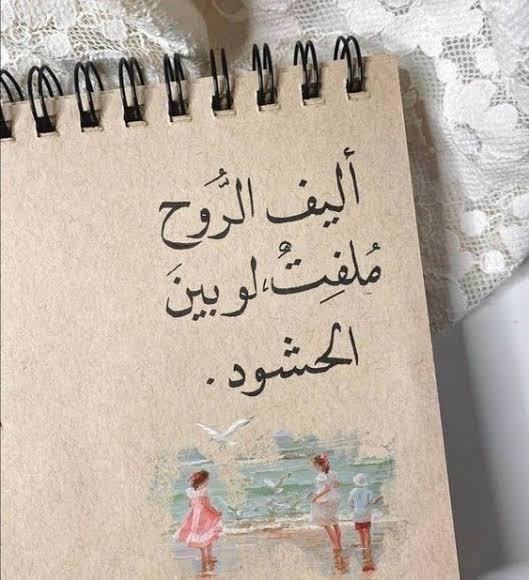 أليف الرُّوح
مُلفِتٌ،لو بينَ
الحشود.